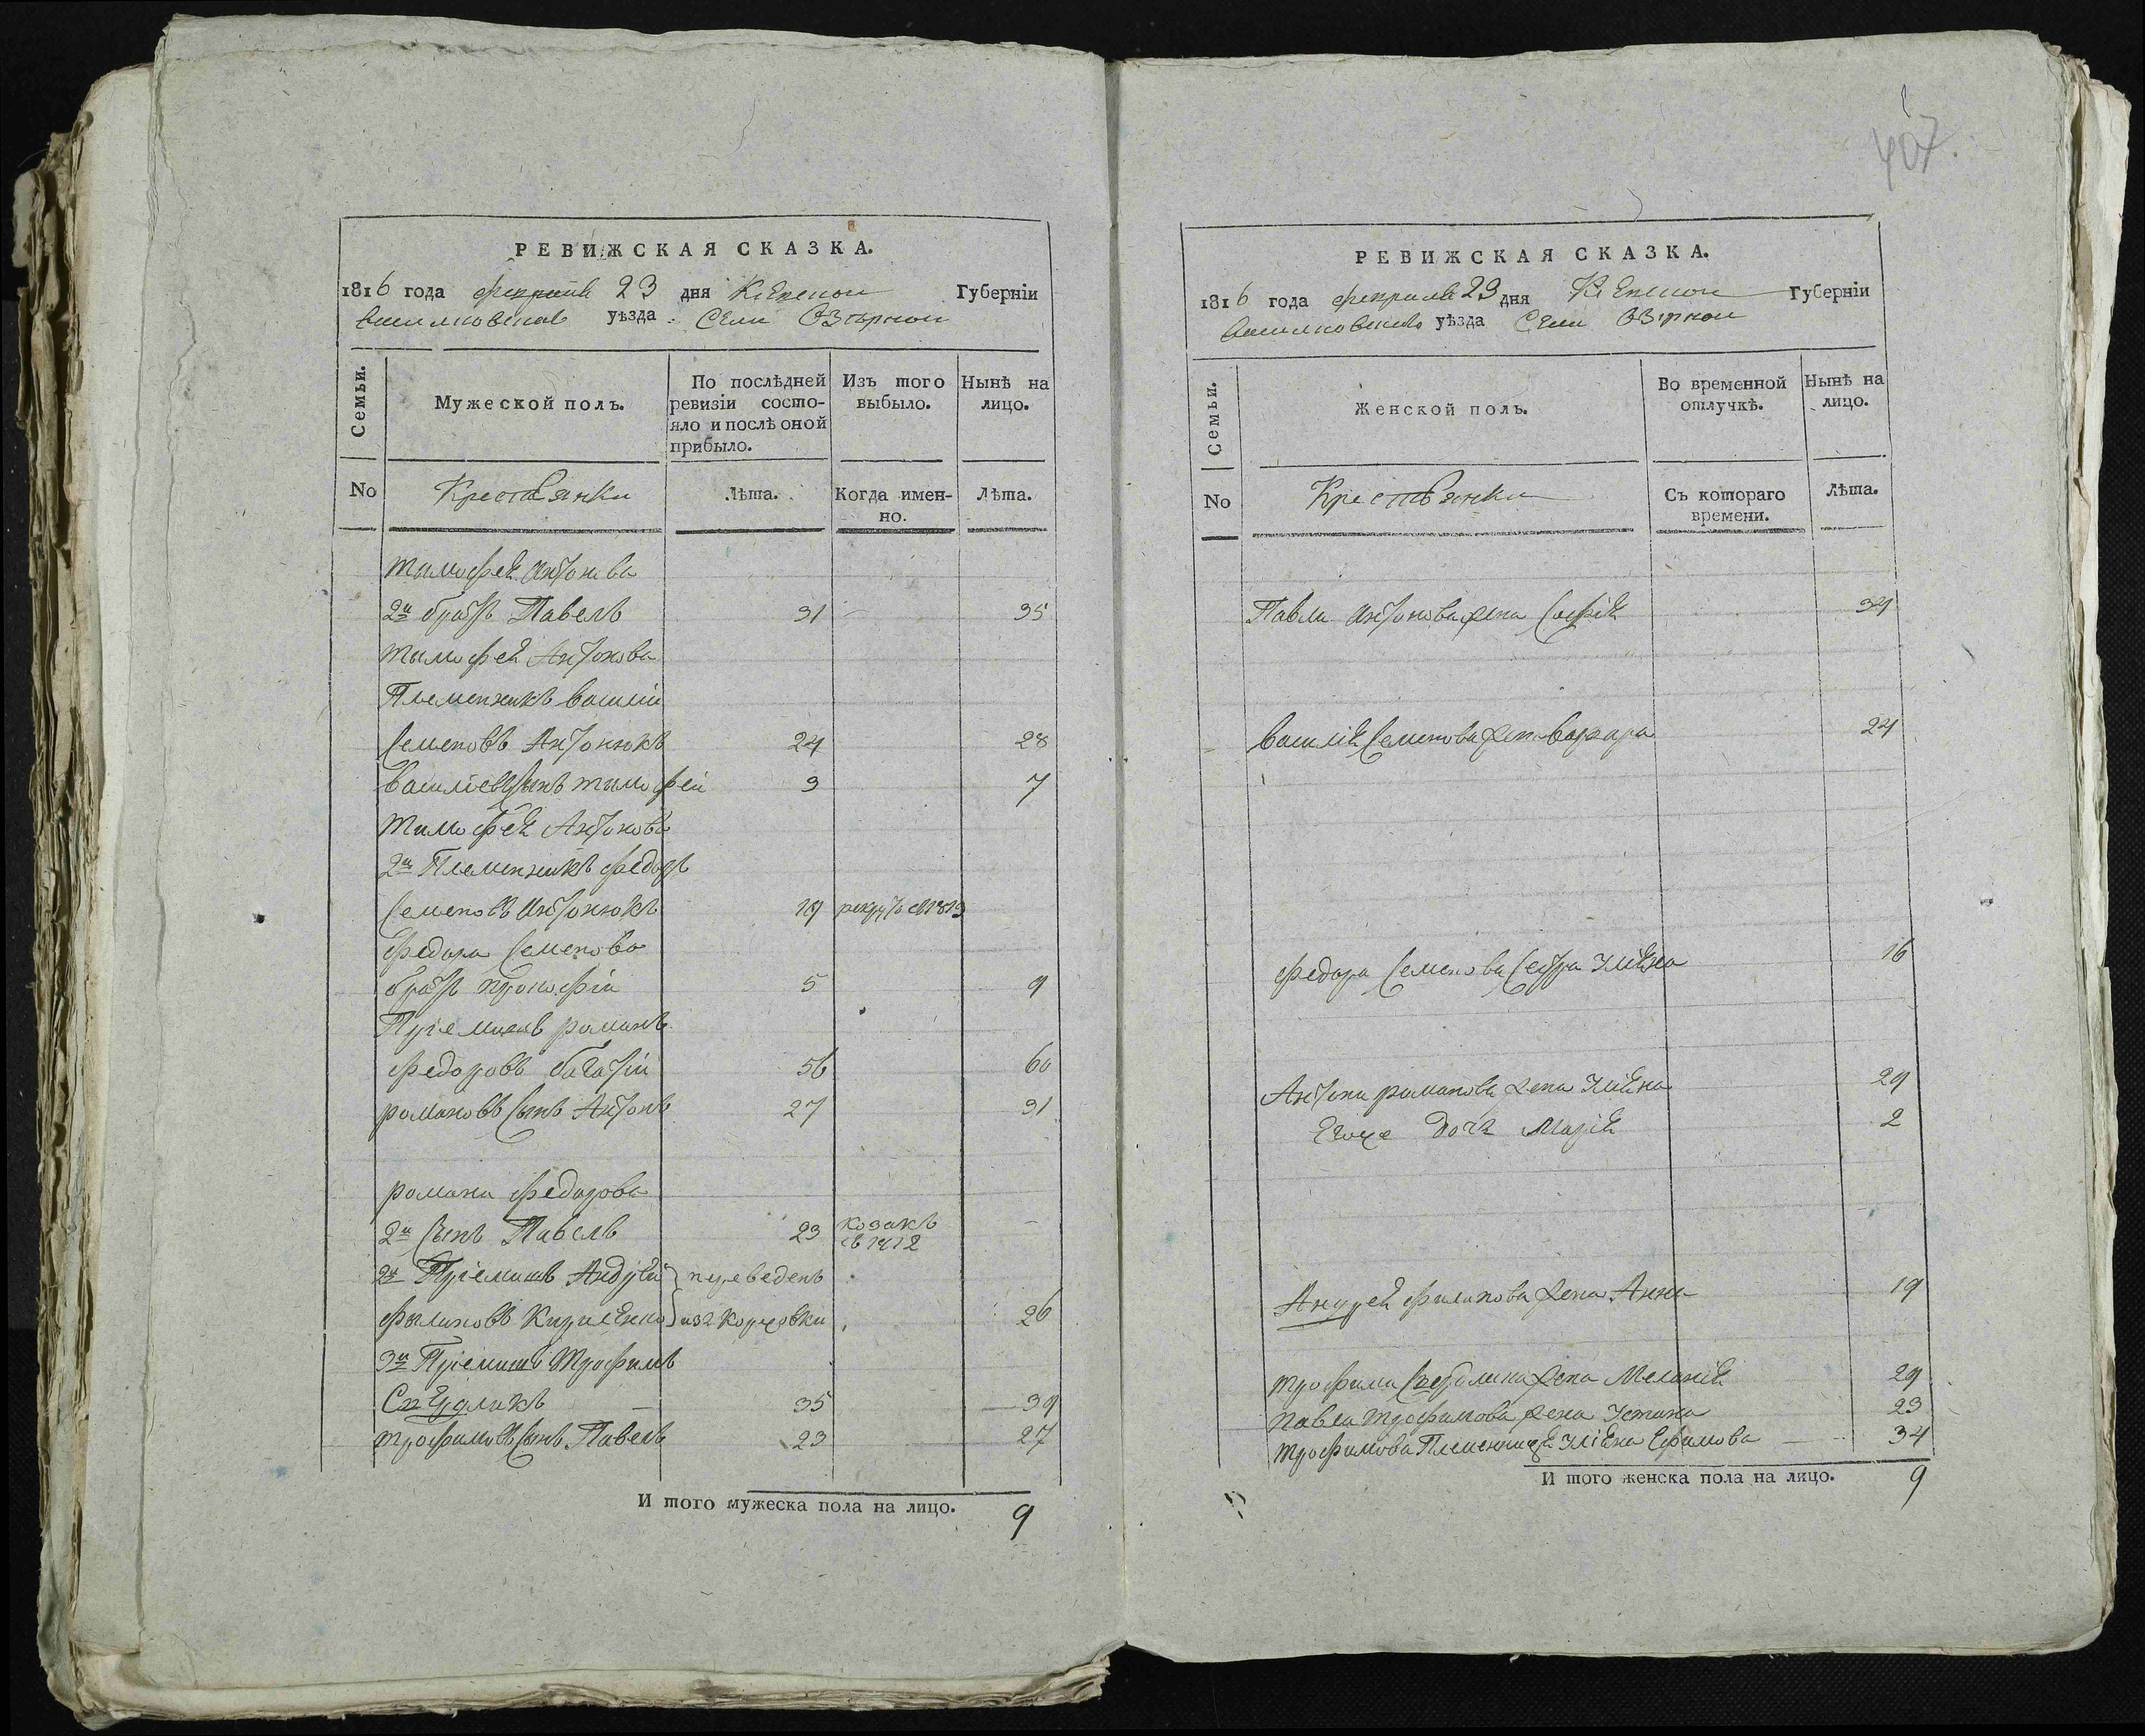 407
РЕВИЖСКАЯ СКАЗКА.
1816 года февраля 23 дня Кіевской Губерніи
Васильковскаго уѣзда Села Озѣрной
Семьи.
Мужеской полъ.
По послѣдней ревизіи состояло и послѣ оной прибыло.
Изъ того выбыло.
Нынѣ на лицо.
No
Лѣта.
Когда именно.
Лѣта.
Тимофея Антонова
2й братъ Павелъ 31 35
Тимофея Антонова
Племенникъ Василій
Семеновъ Антонюкъ 24 28
Васильевъ сынъ Тимофей 3 7
Тимофея Антонова
2й Племенникъ Федоръ
Семеновъ Антонюкъ 19 рекрутъ въ 1813
Федора Семенова
братъ Прокофій 5 9
Пріемишъ Романъ
Федоровъ 56 60
Романовъ сынъ Антонъ 27 31
Романа Федорова
2й сынъ Павелъ 23 козакъ въ 1812
2й Пріемишъ Андрей переведенъ
Филиповъ Кириленко изъ 26
3й Пріемишъ Трофимъ
35 39
Трофимовъ сынъ Павелъ 23 27
И того мужеска пола на лицо. 9
РЕВИЖСКАЯ СКАЗКА.
1816 года февраля 23 дня Кіевской Губерніи
Васильковскаго уѣзда Села Озѣрной
Семьи.
Женской полъ.
Во временной отлучкѣ.
Нынѣ на лицо.
No
Крестьянки
Съ котораго времени.
Лѣта.
Павла Антонова жена Софія 34
Василія Семенова жена Варвара 24
Федора Семенова сестра Уліяна 16
Антона Романова жена Уліяна 29
Егоже дочь Марія 2
Андрея Филипова жена Анна 19
Трофима жена Меланія 29
Павла Трофимова жена Устина 23
Трофимова Племенница Уліяна Ефимова 34
И того женска пола на лицо. 9